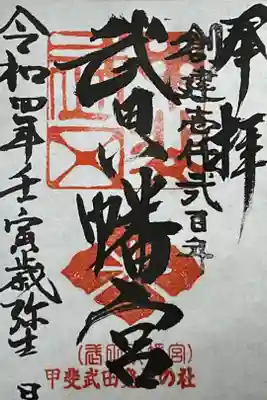 奉拝
創建壱仟弐百年
武田八幡宮
令和四年壬寅歳弥生 日
(武田八幡宮)
甲斐武田 の社